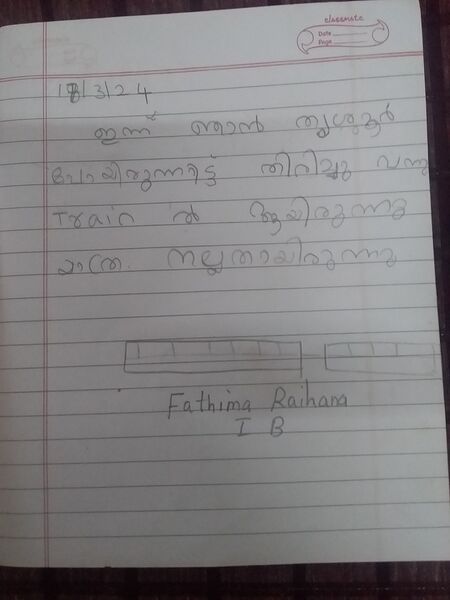 classmate
Date
Page
18/3/24
ഇന്ന് ഞാൻ തൃശൂർ
പോയിരുന്നട്ട് തിരിച്ചു വന്നു
Train ൽ ആയിരുന്നു
യാത്ര. നല്ലതായിരുന്നു
Fathima Raihana
I B